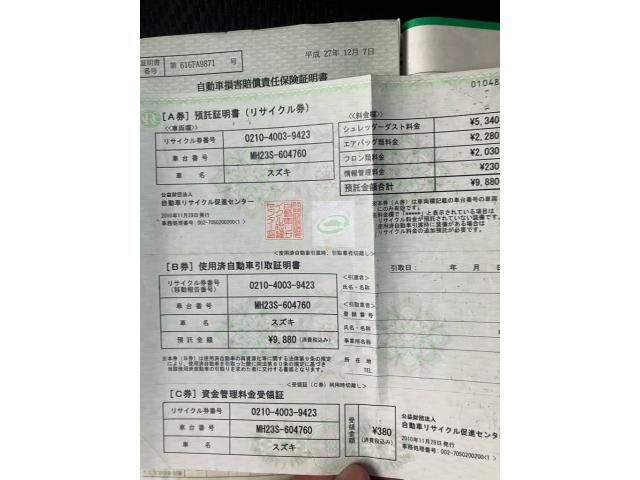 証明書番号 第 616FA9871 号
平成 27年 12月 7日
自動車損害賠償責任保険証明書
01048
[A券] 預託証明書(リサイクル券)
≪車両欄≫
リサイクル券番号 0210-4003-9423
車台番号 MH23S-604760
車名 スズキ
≪料金欄≫
シュレッダーダスト料金 ¥5,340
エアバッグ類料金 ¥2,280
フロン類料金 ¥2,030
情報管理料金 ¥230
預託金額合計 ¥9,880
公益財団法人
自動車リサイクル促進センター
2010年11月29日 発行
事務処理番号: 002-7050200200(1)
<使用済自動車引渡時、引取業者切離し>
[B券] 使用済自動車引取証明書
引取日: 年 月 日
リサイクル券番号(移動報告番号) 0210-4003-9423
車台番号 MH23S-604760
車名 スズキ
預託金額 ¥9,880 (消費税込み)
<引渡者>
氏名・名称
<引取業者>
登録番号
氏名・名称
事業所名
所在地
TEL
<受領証(C券)利用時切離し>
[C券] 資金管理料金受領証
リサイクル券番号 0210-4003-9423
車台番号 MH23S-604760
車名 スズキ
受領金額 ¥380 (消費税込み)
公益財団法人
自動車リサイクル促進センター
2010年11月29日 発行
事務処理番号: 002-7050200200(1)